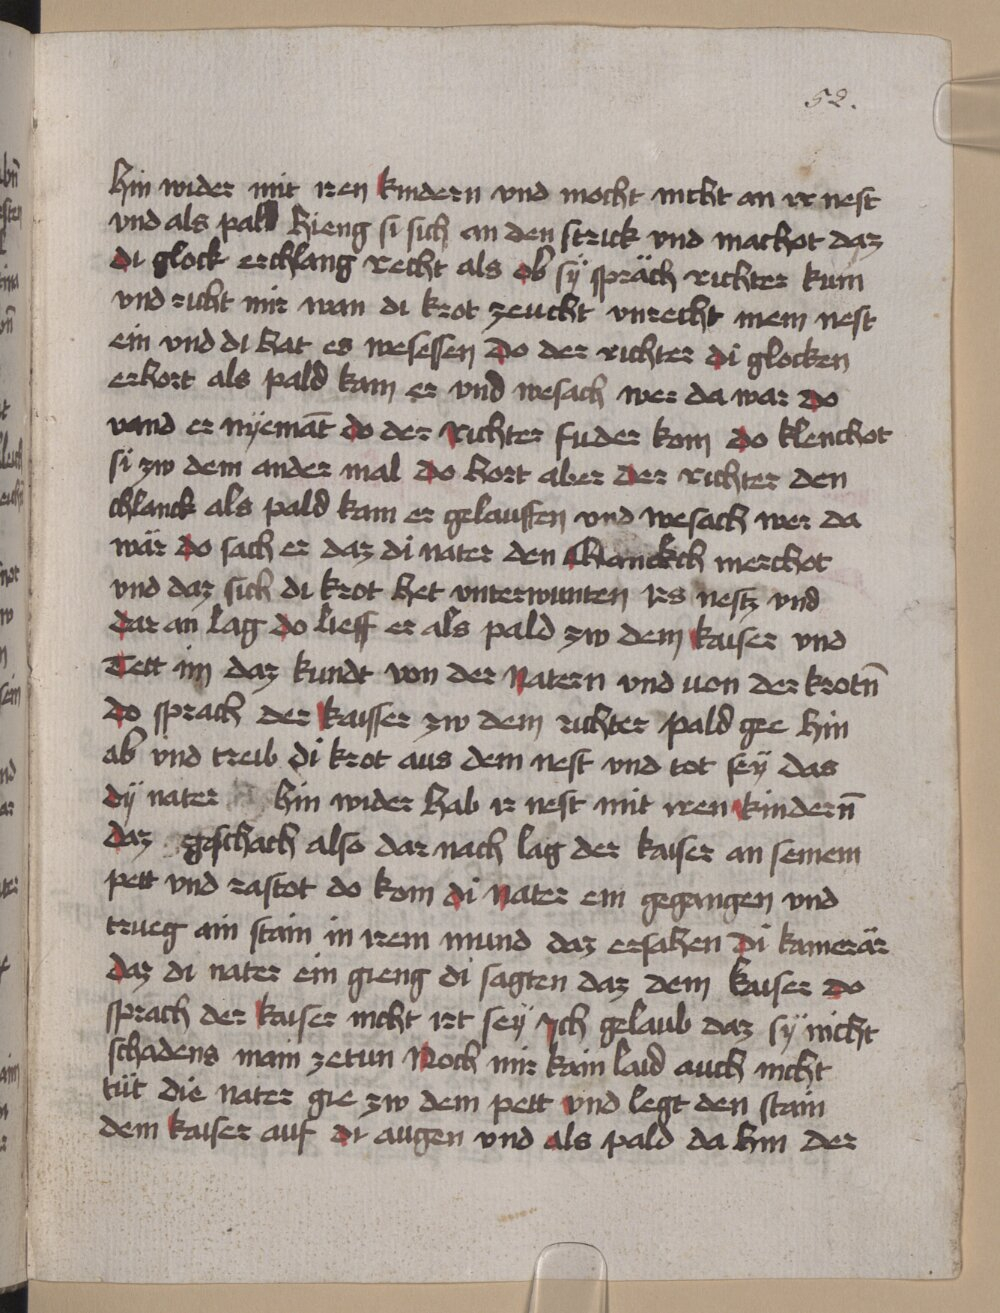 52.
hin wider mit iren kindern vnd mocht nicht an ir nest
vnd als pald hieng si sich an den strick vnd machot daz
di glock erchlang recht als ob sÿ spräch richter kum
vnd richt mir wan di krot zeucht vnrecht mein nest
ein vnd di hat es wesessen Do der richter di glocken
erhort als pald kam er vnd wesach wer da war Do
vand er nÿemāt do der Richter fuder kom do klenchot
si zw dem ander mal Do hort aber der richter den
chlanck als pald kam er gelauffen vnd wesach wer da
wär do sach er daz di nater den chlanckch merchot
vnd daz sich di krot het vnterwunten irs nestz vnd
dar an lag do lieff er als pald zw dem kaiser vnd
Tett im daz kundt von der Natern vnd uon der krotn̄
do sprach der kaisser zw dem richter pald gee hin
ab vnd treib di krot aus dem nest vnd tot seÿ das
dÿ nater hin wider hab ir nest mit iren kindern̄
daz geschach also dar nach lag der kaiser an seinem
pett vnd rastot do kom di Nater ein gegangen vnd
trueg ain stain in irem mund daz ersahen Di kamerär
daz di nater ein gieng di sagten daz dem kaiser do
sprach der kaiser nicht irt seÿ Ich gelaub daz sÿ nicht
schadens main zetun Noch mir kain laid auch nicht
tüt die nater gie zw dem pett vnd legt den stain
dem kaiser auf di augen vnd als pald da hin der